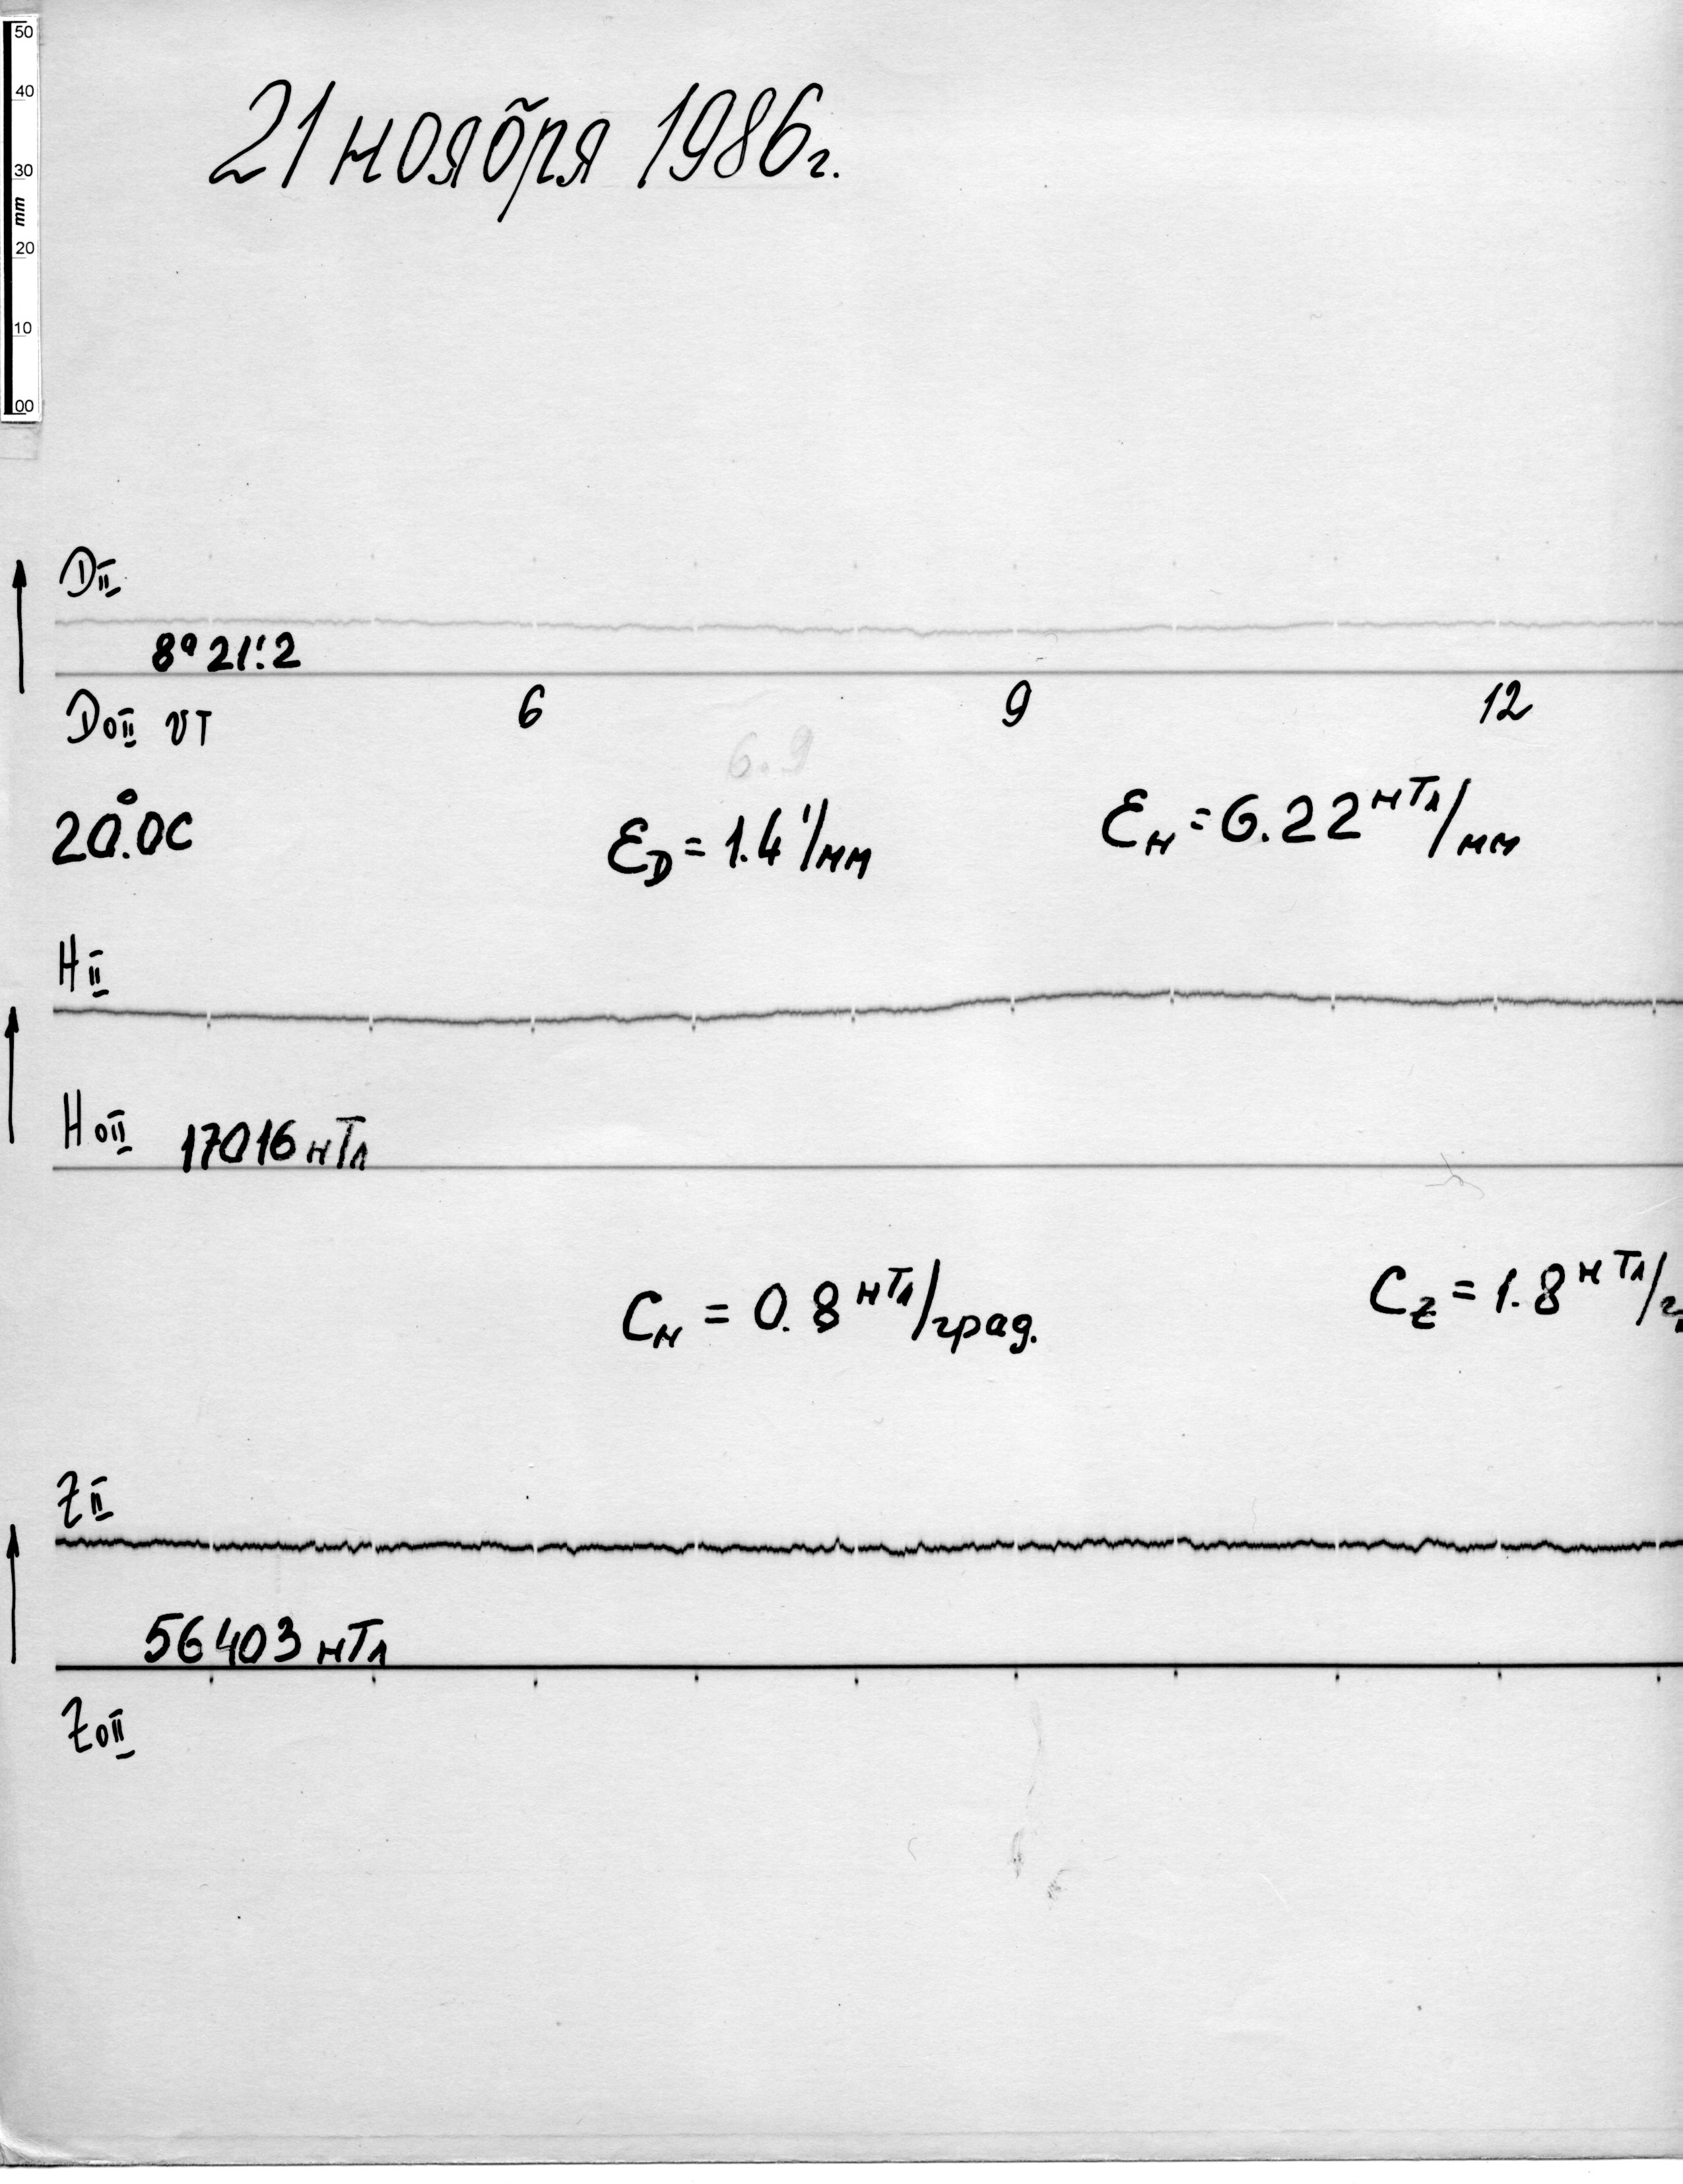 50
40
30
mm
20
10
00
21 ноября 1986г.
DII
8°21!2
D0II UT 6 9 12
6.9
20.°0C
ƐD = 1.4'/мм
ƐH = 6.22 нТл/мм
HII
H0II 17016 нТл
CH = 0.8 нТл/град.
CZ = 1.8 нТл/
ZII
56403 нТл
Z0II